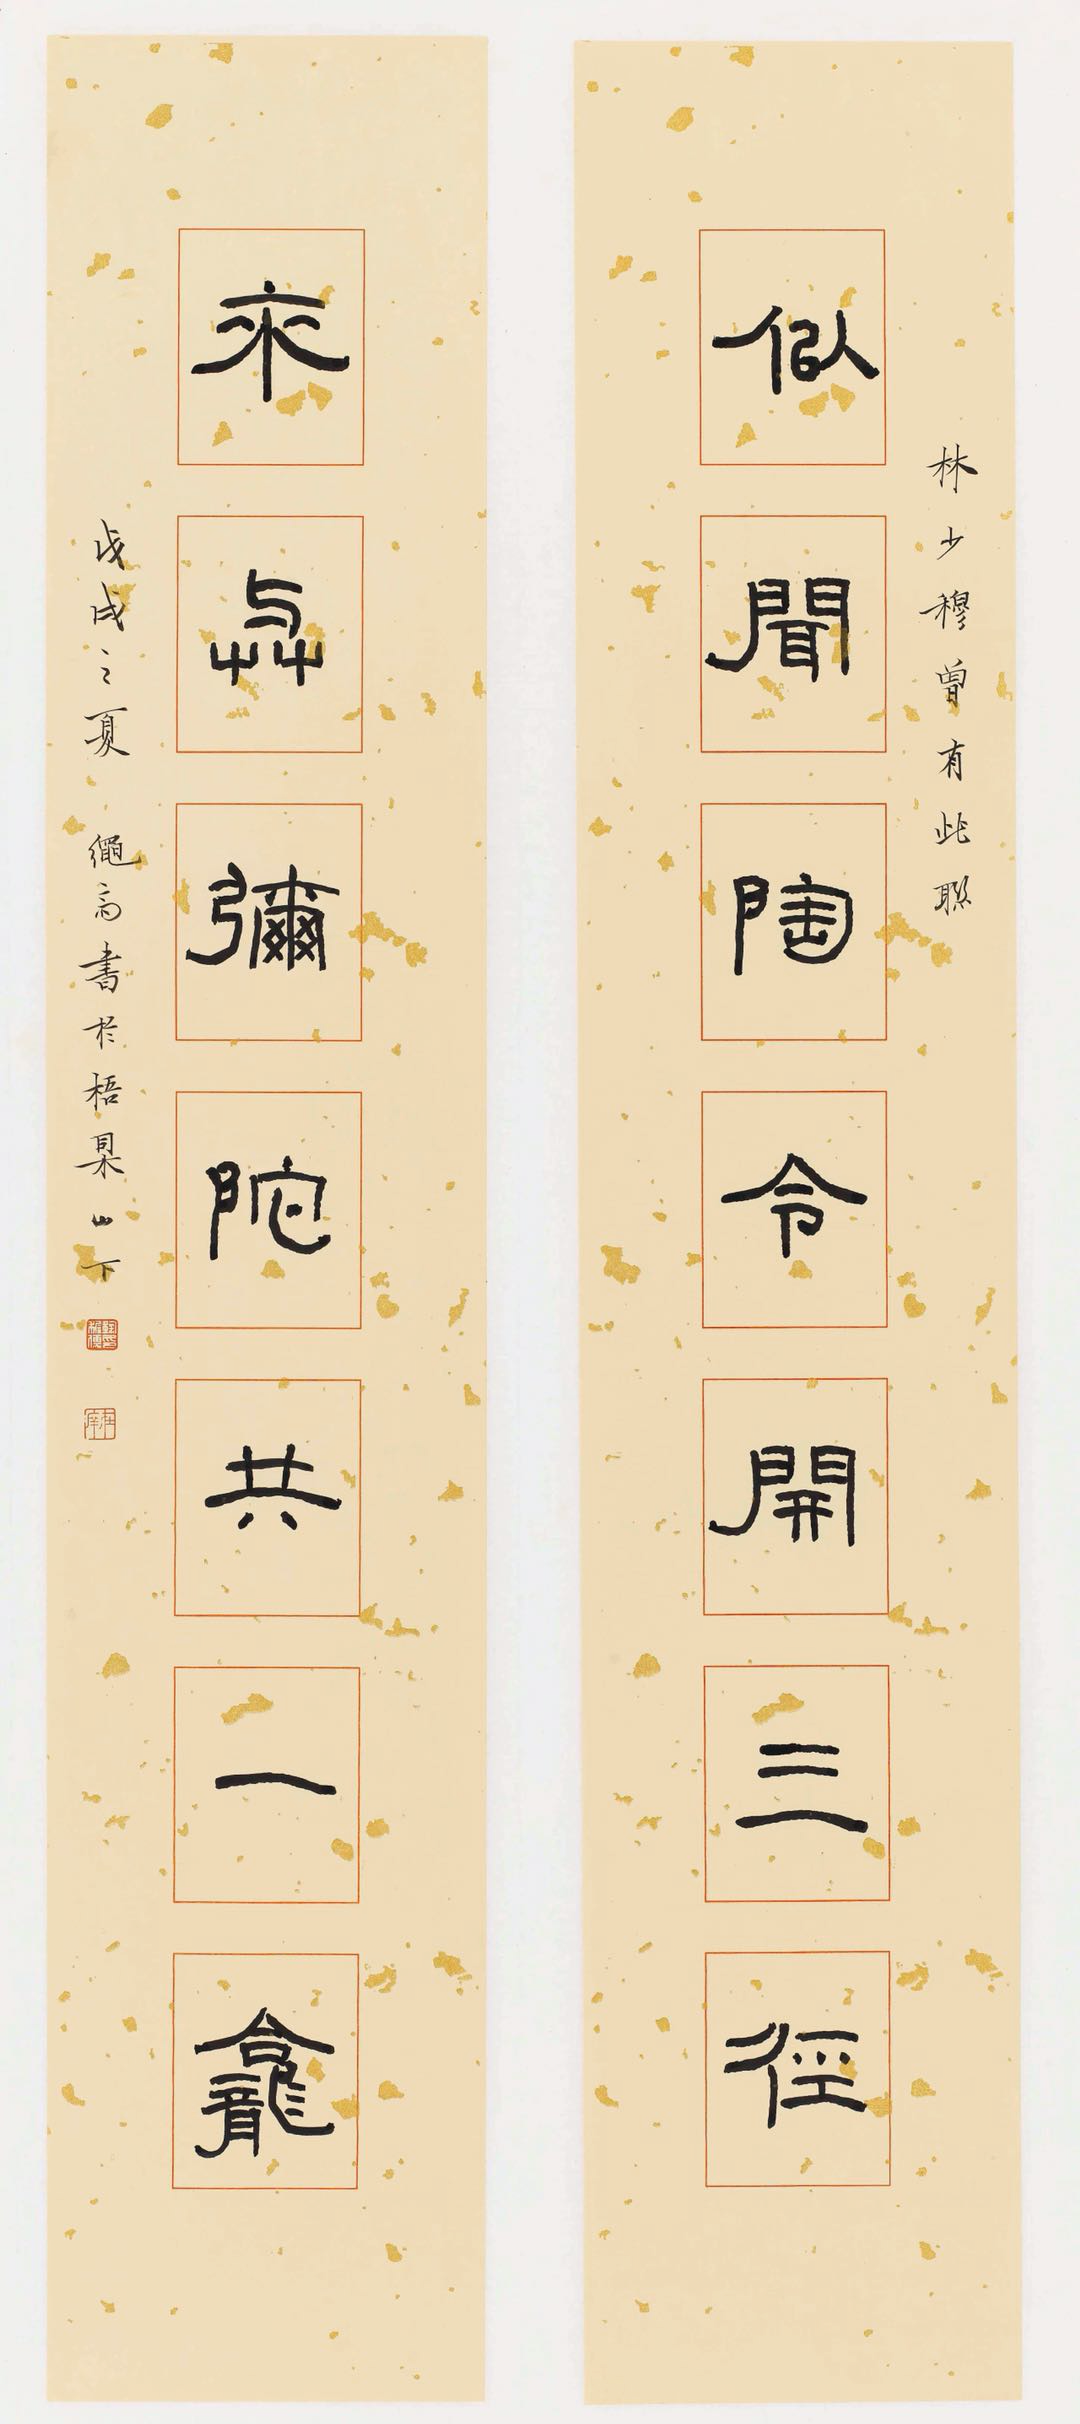 林少穆曾有此聯
似聞陶令開三徑
來與彌陀共一龕
戊戌之夏 繩高書於梧桐山下